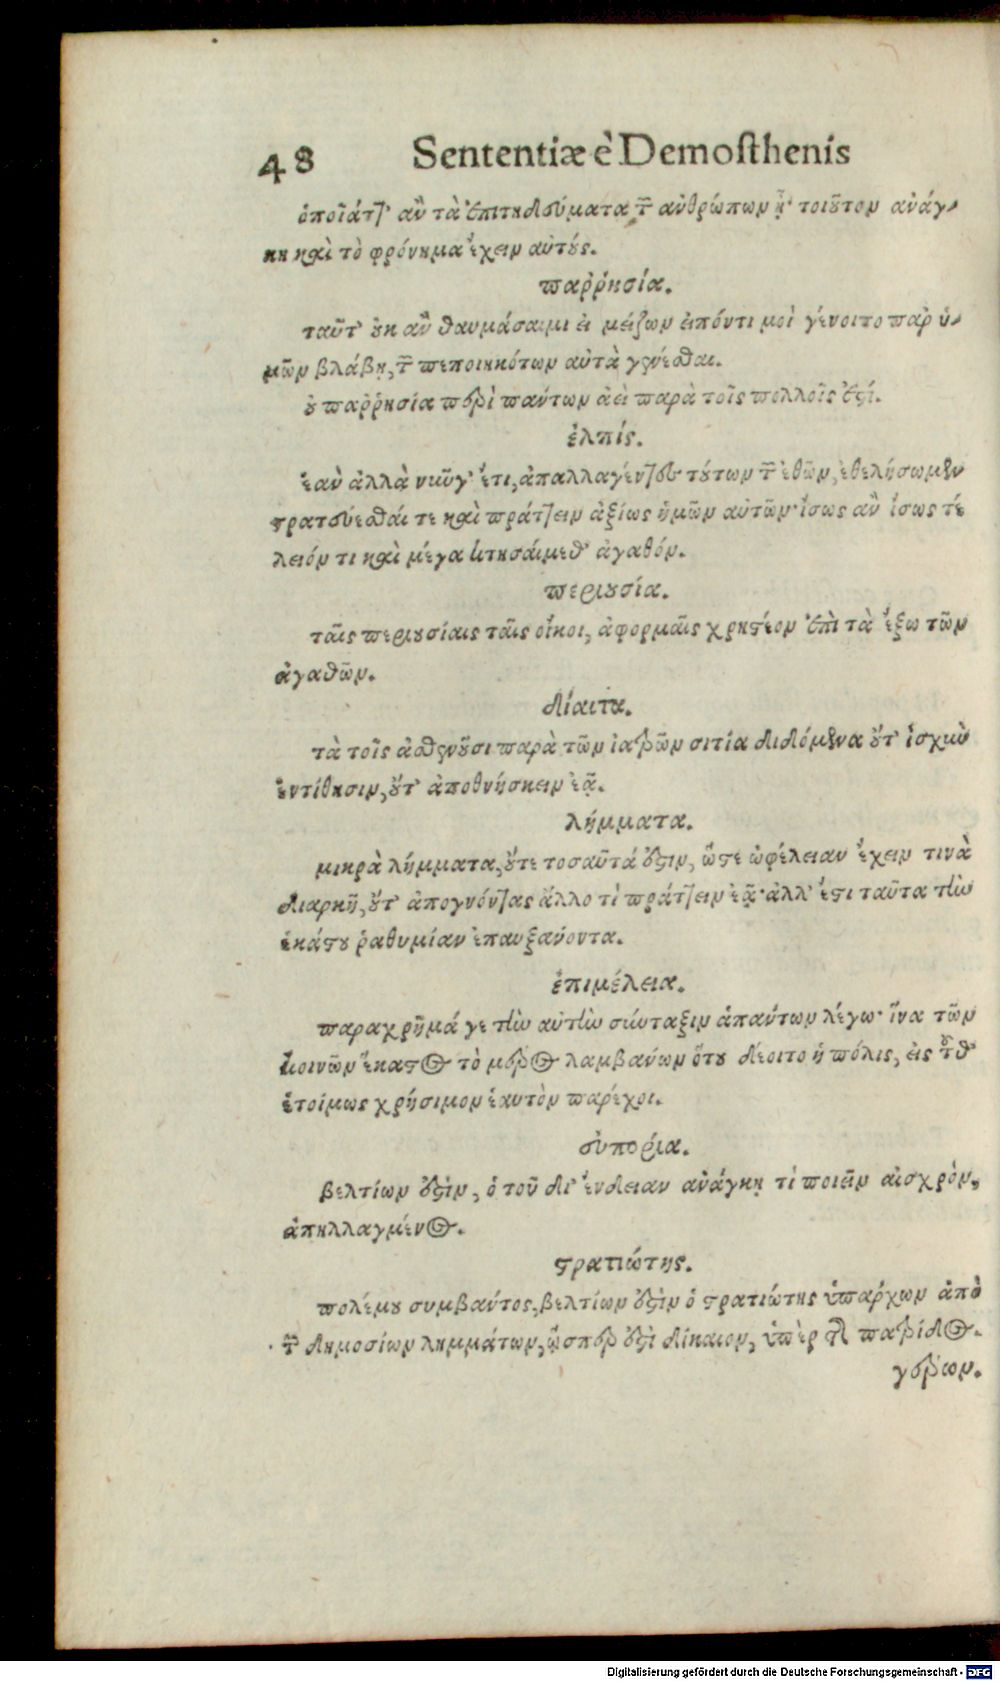 48 Sententiæ è Demosthenis
ὁποῖάττ' ἂν τὰ ἐπιτηδεύματα τῶν ἀνθρώπων ᾖ· τοιοῦτον ἀνάγ-
κη καὶ τὸ φρόνημα ἔχειν αὐτούς.
παῤῥησία.
ταῦτ' οὐκ ἂν θαυμάσαιμι εἰ μείζων εἰπόντι μοὶ γένοιτο παρ ὑ-
μῶν βλάβη, τῶν πεποιηκότων αὐτὰ γενέσθαι.
οὐ παῤῥησία περὶ πάντων ἀεὶ παρὰ τοῖς πολλοῖς ἐστί.
ἐλπίς.
ἐὰν ἀλλὰ νῦν γ' ἔτι, ἀπαλλαγέντες τούτων τῶν ἐθῶν, ἐθελήσωμεν
στρατεύεσθάι τε καὶ πράττειν ἀξίως ἡμῶν αὐτῶν· ἴσως ἂν ἴσως τέ
λειόν τι καὶ μέγα κτησάιμεθ' ἀγαθόν.
περιουσία.
ταῖς περιουσίαις ταῖς οἴκοι, ἀφορμαῖς χρηστέον ἐπὶ τὰ ἔξω τῶν
ἀγαθῶν.
δίαιτα.
τὰ τοῖς ἀσθενοῦσι παρὰ τῶν ἰατρῶν σιτία διδόμενα οὔτ' ἰσχὺν
ἐντίθησιν, οὔτ' ἀποθνήσκειν ἐᾷ.
λήμματα.
μικρὰ λήμματα, οὔτε τοσαῦτά ἐστιν, ὥστε ὠφέλειαν ἔχειν τινὰ
διαρκῆ, οὔτ' ἀπογνόντας ἄλλο τὶ πράττειν ἐᾷ· ἀλλ' ἔστι ταῦτα τὴν
ἑκάστου ῥαθυμίαν ἐπαυξάνοντα.
ἐπιμέλεια.
παραχρῆμά γε τὴν αὐτὴν σύνταξιν ἁπάντων λέγω· ἵνα τῶν
κοινῶν ἕκαστος τὸ μέρος λαμβάνων ὅτου δέοιτο ἡ πόλις, εἰς τοῦθ'
ἑτοίμως χρήσιμον ἑαυτὸν παρέχοι.
εὐπορία.
βελτίων ἐστὶν, ὁ τοῦ δι' ἔνδειαν ἀνάγκῃ τὶ ποιεῖν αἰσχρὸν,
ἀπηλλαγμένος.
στρατιώτης.
πολέμου συμβάντος, βελτίων ἐστὶν ὁ στρατιώτης ὑπάρχων ἀπὸ
τῶν δημοσίων λημμάτων, ὥσπερ ἐστὶ δίκαιον, ὑπὲρ τῆς πατρίδος.
γέρων.
Digitalisierung gefördert durch die Deutsche Forschungsgemeinschaft - DFG